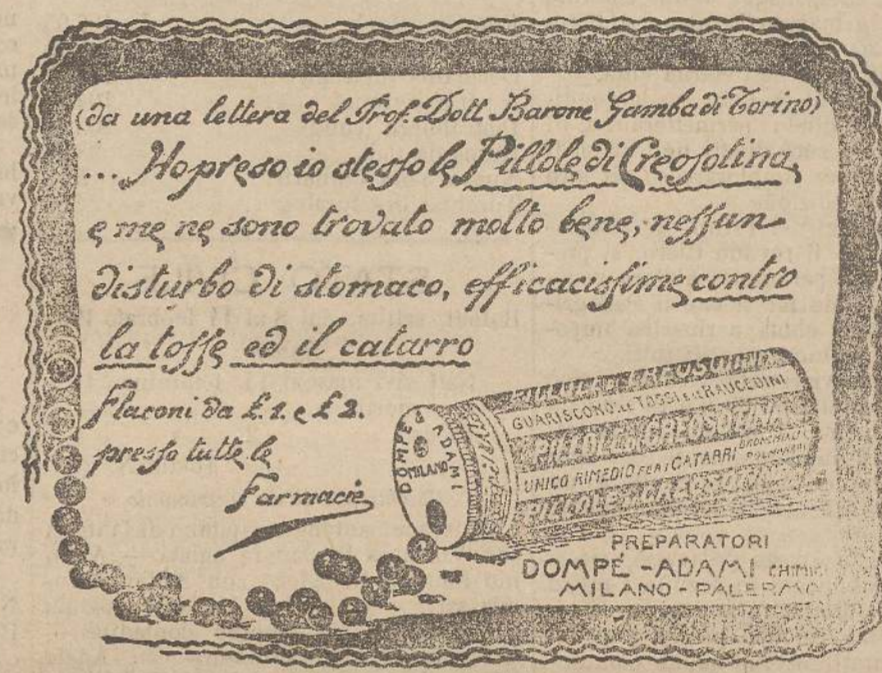 (da una lettera del Prof. Dott. Barone Gamba di Torino)
... Ho preso io stesso le Pillole di Creosotina,
e me ne sono trovato molto bene, nessun
disturbo di stomaco, efficacissime contro
la tosse ed il catarro
Flaconi da £.1. e £2.
presso tutte le
Farmacie
DOMPÉ & ADAMI
MILANO
PILLOLE DI CREOSOTINA
GUARISCONO LE TOSSI E LE RAUCEDINI
PILLOLE DI CREOSOTINA
UNICO RIMEDIO PER I CATARRI BRONCHIALI POLMONARI
PILLOLE DI CREOSOTINA
PREPARATORI
DOMPÉ - ADAMI CHIMICI
MILANO - PALERMO